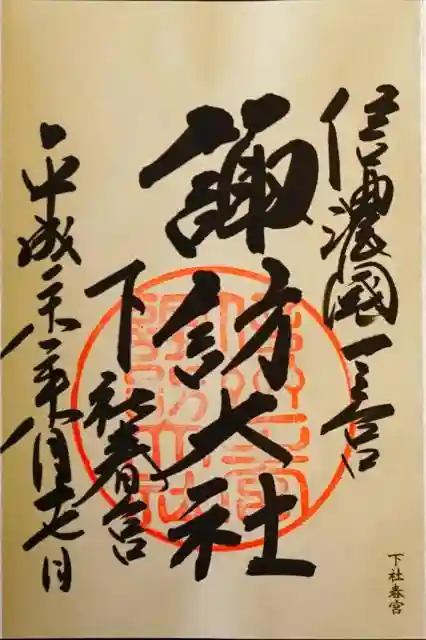 信濃國一之宮
諏訪大社
下社春宮
平成二十一年八月十七日
下社春宮